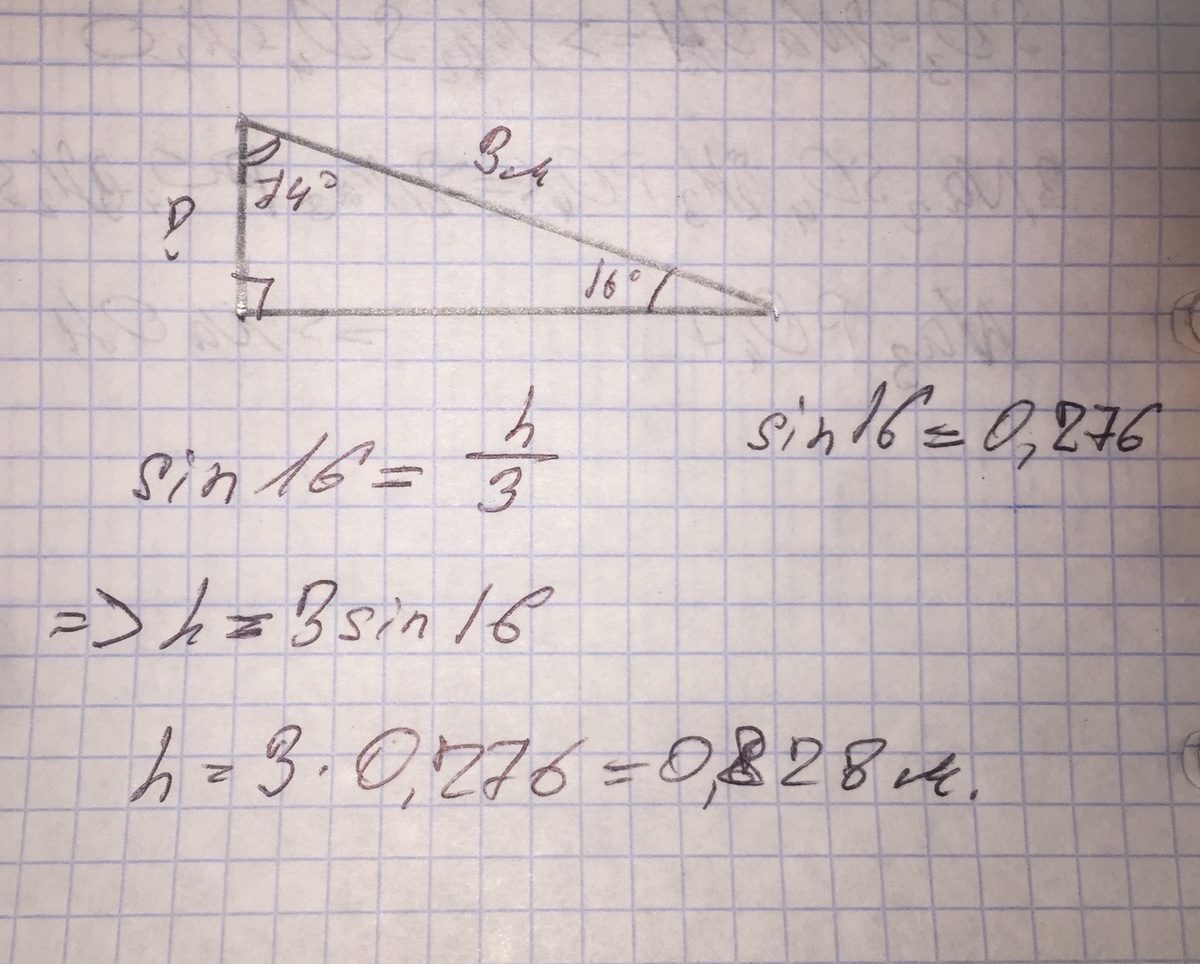 3м
74°
?
16°
sin 16 = h/3
sin 16 = 0,276
=> h = 3 sin 16
h = 3 · 0,276 = 0,828 м.